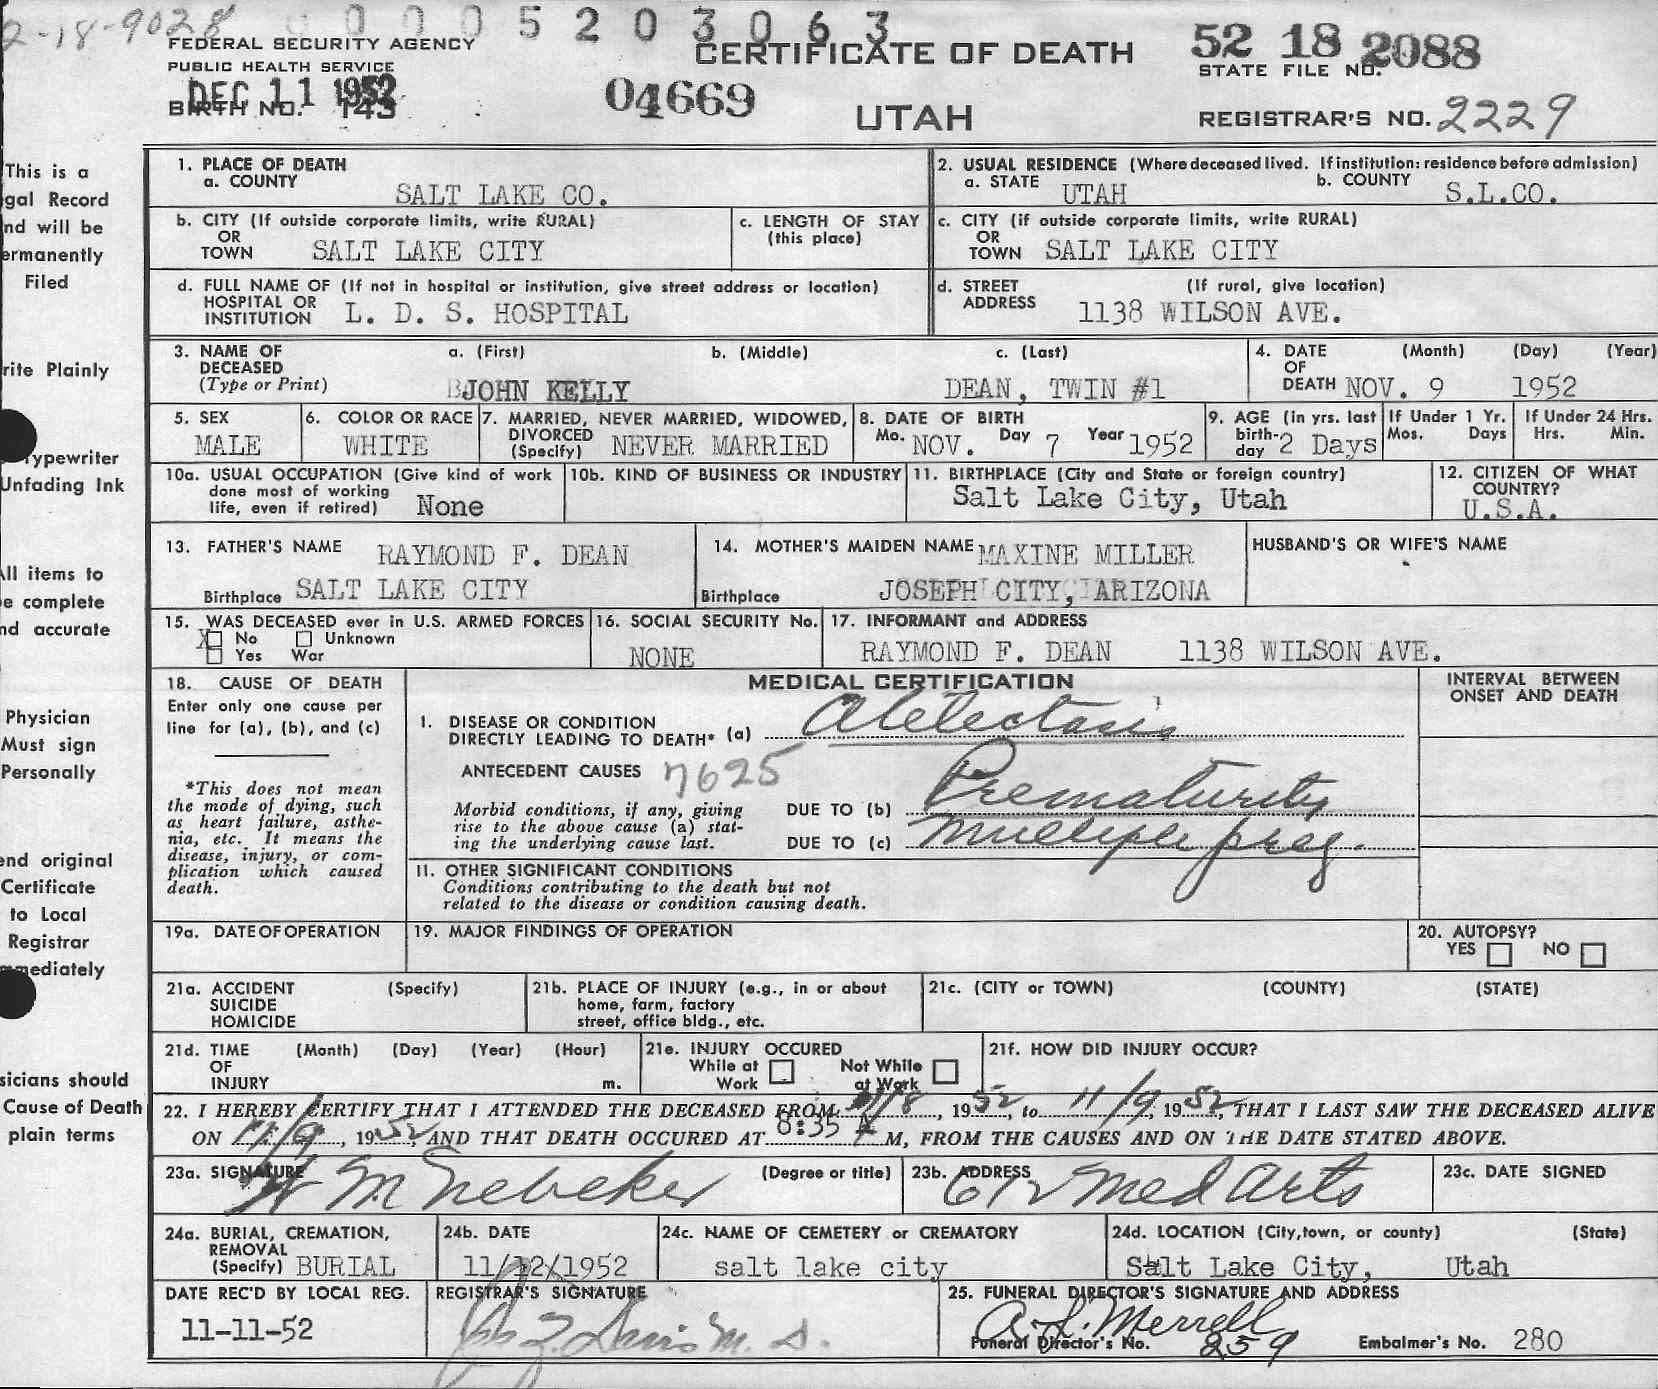 2-18-9028 0 0 0 5 2 0 3 0 6 3
FEDERAL SECURITY AGENCY
PUBLIC HEALTH SERVICE
DEC 11 1952
BIRTH NO. 143
04669
CERTIFICATE OF DEATH
UTAH
52 18 2088
STATE FILE NO.
REGISTRAR'S NO. 2229
This is a
gal Record
nd will be
ermanently
Filed
rite Plainly
Typewriter
Unfading Ink
All items to
e complete
nd accurate
Physician
Must sign
Personally
end original
Certificate
to Local
Registrar
mmediately
sicians should
Cause of Death
plain terms
1. PLACE OF DEATH
a. COUNTY SALT LAKE CO.
2. USUAL RESIDENCE (Where deceased lived. If institution: residence before admission)
a. STATE UTAH b. COUNTY S.L.CO.
b. CITY (If outside corporate limits, write RURAL)
OR
TOWN SALT LAKE CITY
c. LENGTH OF STAY
(this place)
c. CITY (if outside corporate limits, write RURAL)
OR
TOWN SALT LAKE CITY
d. FULL NAME OF (If not in hospital or institution, give street address or location)
HOSPITAL OR
INSTITUTION L. D. S. HOSPITAL
d. STREET (If rural, give location)
ADDRESS 1138 WILSON AVE.
3. NAME OF DECEASED
(Type or Print)
a. (First) b. (Middle) c. (Last)
JOHN KELLY DEAN, TWIN #1
4. DATE (Month) (Day) (Year)
OF
DEATH NOV. 9 1952
5. SEX
MALE
6. COLOR OR RACE
WHITE
7. MARRIED, NEVER MARRIED, WIDOWED,
DIVORCED
(Specify) NEVER MARRIED
8. DATE OF BIRTH
Mo. NOV. Day 7 Year 1952
9. AGE (in yrs. last
birth-
day 2 Days
If Under 1 Yr.
Mos. Days
If Under 24 Hrs.
Hrs. Min.
10a. USUAL OCCUPATION (Give kind of work
done most of working
life, even if retired) None
10b. KIND OF BUSINESS OR INDUSTRY
11. BIRTHPLACE (City and State or foreign country)
Salt Lake City, Utah
12. CITIZEN OF WHAT
COUNTRY?
U.S.A.
13. FATHER'S NAME RAYMOND F. DEAN
Birthplace SALT LAKE CITY
14. MOTHER'S MAIDEN NAME MAXINE MILLER
Birthplace JOSEPH CITY, ARIZONA
HUSBAND'S OR WIFE'S NAME
15. WAS DECEASED ever in U.S. ARMED FORCES
X No Unknown
Yes War
16. SOCIAL SECURITY No.
NONE
17. INFORMANT and ADDRESS
RAYMOND F. DEAN 1138 WILSON AVE.
18. CAUSE OF DEATH
Enter only one cause per
line for (a), (b), and (c)
*This does not mean
the mode of dying, such
as heart failure, asthe-
nia, etc. It means the
disease, injury, or com-
plication which caused
death.
MEDICAL CERTIFICATION
I. DISEASE OR CONDITION
DIRECTLY LEADING TO DEATH* (a) Atelectasis
ANTECEDENT CAUSES 7625
Morbid conditions, if any, giving
rise to the above cause (a) stat-
ing the underlying cause last.
DUE TO (b) Prematurity
DUE TO (c) multiple preg.
11. OTHER SIGNIFICANT CONDITIONS
Conditions contributing to the death but not
related to the disease or condition causing death.
INTERVAL BETWEEN
ONSET AND DEATH
19a. DATE OF OPERATION
19. MAJOR FINDINGS OF OPERATION
20. AUTOPSY?
YES NO
21a. ACCIDENT (Specify)
SUICIDE
HOMICIDE
21b. PLACE OF INJURY (e.g., in or about
home, farm, factory
street, office bldg., etc.
21c. (CITY or TOWN) (COUNTY) (STATE)
21d. TIME (Month) (Day) (Year) (Hour)
OF
INJURY m.
21e. INJURY OCCURED
While at Work Not While at Work
21f. HOW DID INJURY OCCUR?
22. I HEREBY CERTIFY THAT I ATTENDED THE DECEASED FROM 11/8, 1952, to 11/9, 1952, THAT I LAST SAW THE DECEASED ALIVE
ON 11/9, 1952, AND THAT DEATH OCCURED AT 8:35 A M, FROM THE CAUSES AND ON THE DATE STATED ABOVE.
23a. SIGNATURE (Degree or title)
M Nebeker
23b. ADDRESS
612 Med Arts
23c. DATE SIGNED
24a. BURIAL, CREMATION,
REMOVAL
(Specify) BURIAL
24b. DATE
11/12/1952
24c. NAME OF CEMETERY or CREMATORY
salt lake city
24d. LOCATION (City, town, or county) (State)
Salt Lake City, Utah
DATE REC'D BY LOCAL REG.
11-11-52
REGISTRAR'S SIGNATURE
Davis M. D.
25. FUNERAL DIRECTOR'S SIGNATURE AND ADDRESS
A. L. Merrell
Funeral Director's No. 259 Embalmer's No. 280